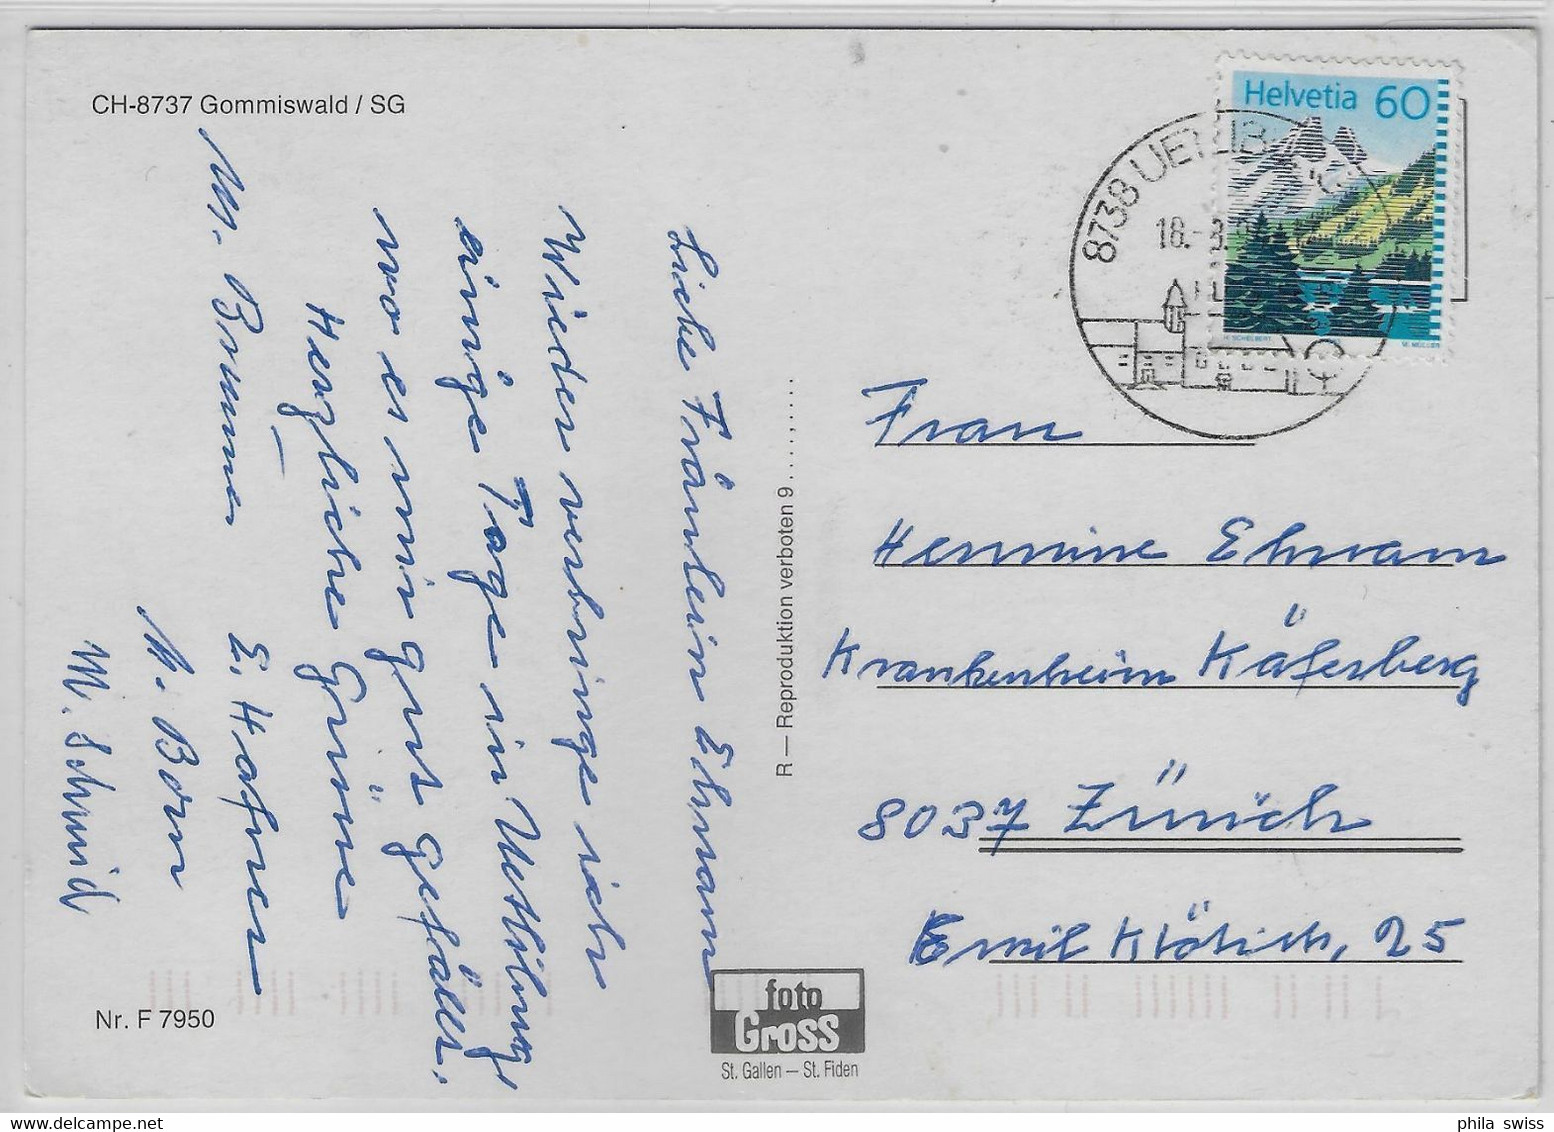 CH-8737 Gommiswald / SG
Liebe Fräulein Ehram
Wieder verbringe ich
einige Tage in Uetliburg,
wo es mir gut gefällt.
Herzliche Grüsse
M. Brunner
E. Hafner
M. Born
M. Schmid
Nr. F 7950
R — Reproduktion verboten 9 . . . . , . . . .
foto
Gross
St. Gallen — St. Fiden
Helvetia 60
H. SCHELBERT
M. MÜLLER
8738 UETLIB
18.-8.
Frau
Hermine Ehram
Krankenheim Käferberg
8037 Zürich
Emil Klötistr, 25
phila swiss